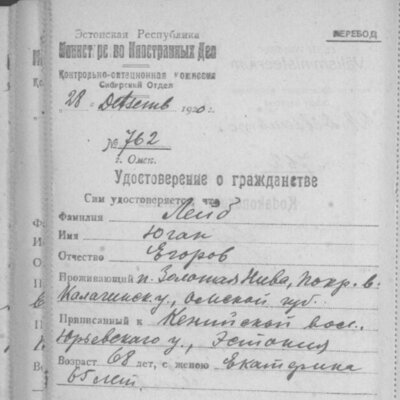 ПЕРЕВОД
Эстонская Республика
Министерство Иностранных Дел
Контрольно-оптационная комиссия
Сибирский Отдел
28 1920 г.
№ 762
г. Омск.
Удостоверение о гражданстве
Сим удостоверяется, что
Фамилия Лейб
Имя Юган
Отчество Егоров
Проживающий п. Золотая Нива, Покр. в.
Калачинск. у., Омской губ.
Приписанный к вол.
Юрьевскаго у., Эстония
Возраст 68 лет, с женою Екатерина
65 лет.